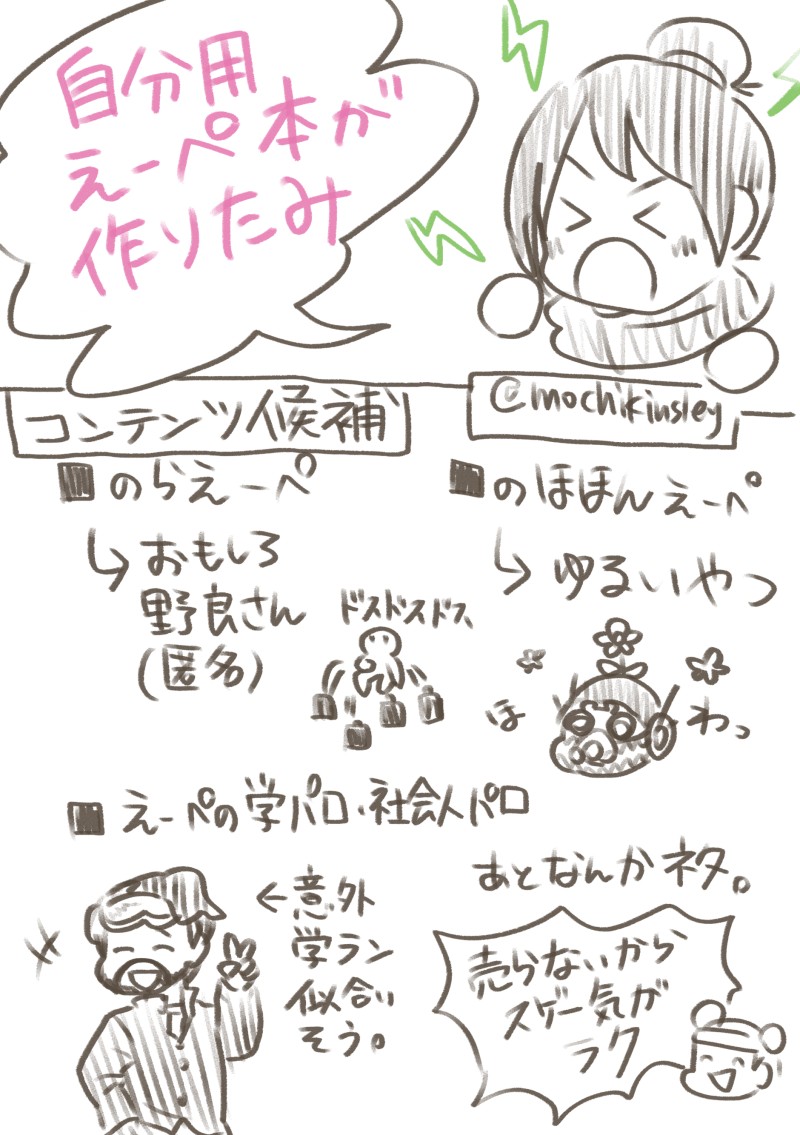 自分用
えーペ本が
作りたみ
コンテンツ候補
@mochikinsley
■のらえーペ
↳おもしろ
野良さん
(匿名)
ドスドスドス
■のほほんえーペ
↳ゆるいやつ
ほわっ
■えーペの学パロ・社会人パロ
←意外
学ラン
似合い
そう。
あとなんかネタ。
売らないから
スゲー気が
ラク